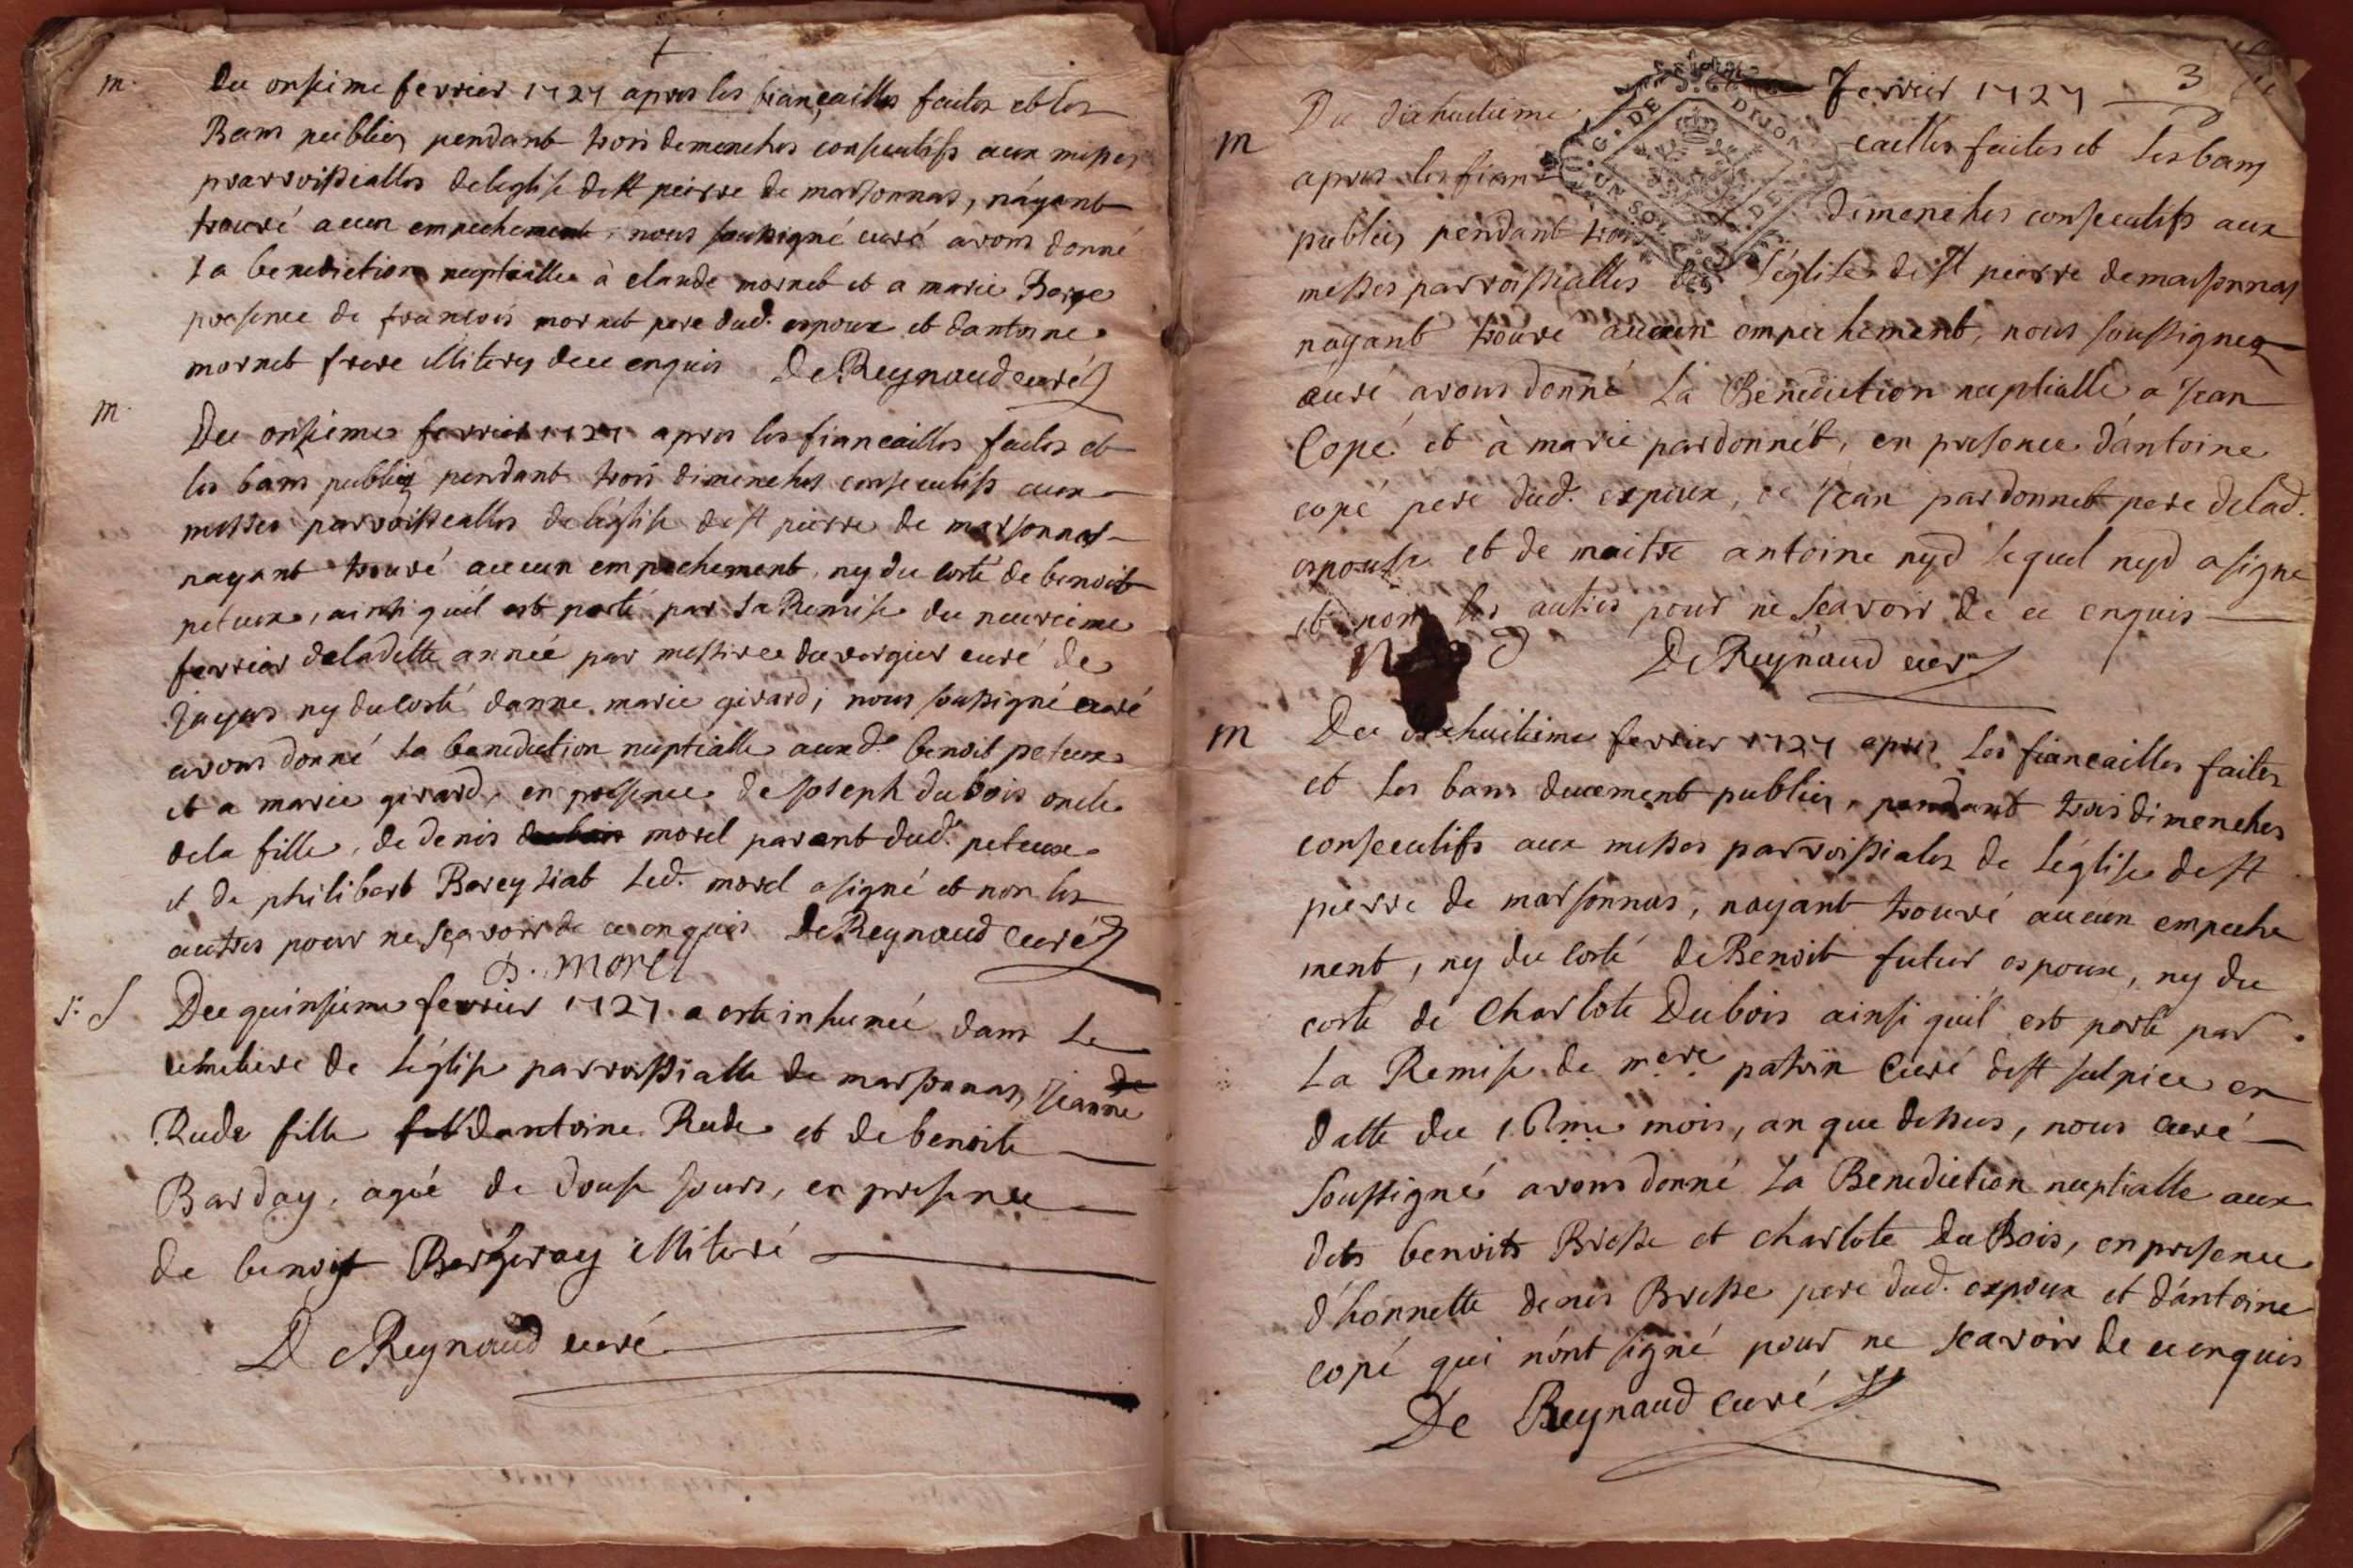 m.
Du onsieme fevrier 1727 apres les fiançailles faites et les
Bans publiez pendant trois dimenches consecutifs aux messes
parroissealles de leglise de st pierre de marsonnas, nayant
trouvé aucun empechement, nous soussigné curé avons donné
la benediction nuptialle à claude mornet et a marie Barge
presence de francois mornet pere dud. espoux et dantoine
mornet frere illiterez de ce enquis De Reynaud curé
m.
Du onsieme fevrier 1727 apres les fiancailles faites et
les bans publiez pendant trois dimenches consecutifs aux
messes parroissealles de leglise de st pierre de marsonnas
nayant trouvé aucun empechement, ny du costé de benoit
peteux, ainsi quil est porté par la Remise du neuvieme
fevrier de ladette année par messire duvergier curé de
jayas ny du costé danne marie girard, nous soussigné curé
avons donné la benediction nuptialle auxd. benoit peteux
et a marie girard, en presence de joseph dubois oncle
de la fille, de denis morel parent dud. peteux
et de philibert led. morel a signé et non les
autres pour ne sçavoir de ce enquis De Reynaud Curé
D. Morel
s. Du quinsieme fevrier 1727 a esté inhumée dans le
cemetiere de l'église parroissialle de marsonnas, jeanne
Rude fille dantoine Rude et de benoite
Barday, agée de douse jours, en presence
de benoist illiteré
De Reynaud curé
3
G. DE DIJON
UN SOL
Du dixhuitieme fevrier 1727
m
apres les fiancailles faites et les bans
publiez pendant trois dimenches consecutifs aux
messes parroissialles de l'église de st pierre de marsonnas
nayant trouvé aucun empechement, nous soussignez
curé avons donné La Benediction nuptialle a jean
Copé et à marie pardonnét, en presence d'antoine
copé pere dud. espoux, de jean pardonnet pere de lad.
espouse et de maitre antoine nyd lequel nyd a signé
et non les autres pour ne scavoir de ce enquis
De Reynaud curé
m
Du dixhuitieme fevrier 1727 apres les fiancailles faites
et les bans duement publiez, pendant trois dimenches
consecutifs aux messes parroissiales de l'église de st
pierre de marsonnas, nayant trouvé aucun empeche
ment, ny du costé de Benoit futur espoux, ny du
costé de Charlote Dubois ainsi quil est porté par
La Remise de mere patrin Curé de st sulpice en
datte du 16me mois, an que dessus, nous curé
soussigné avons donné La Benediction nuptialle aux
dits benoits Bresse et charlote du Bois, en presence
d'honnette denis Bresse pere dud. espoux et d'antoine
copé qui n'ont signé pour ne scavoir de ce enquis
De Reynaud Curé